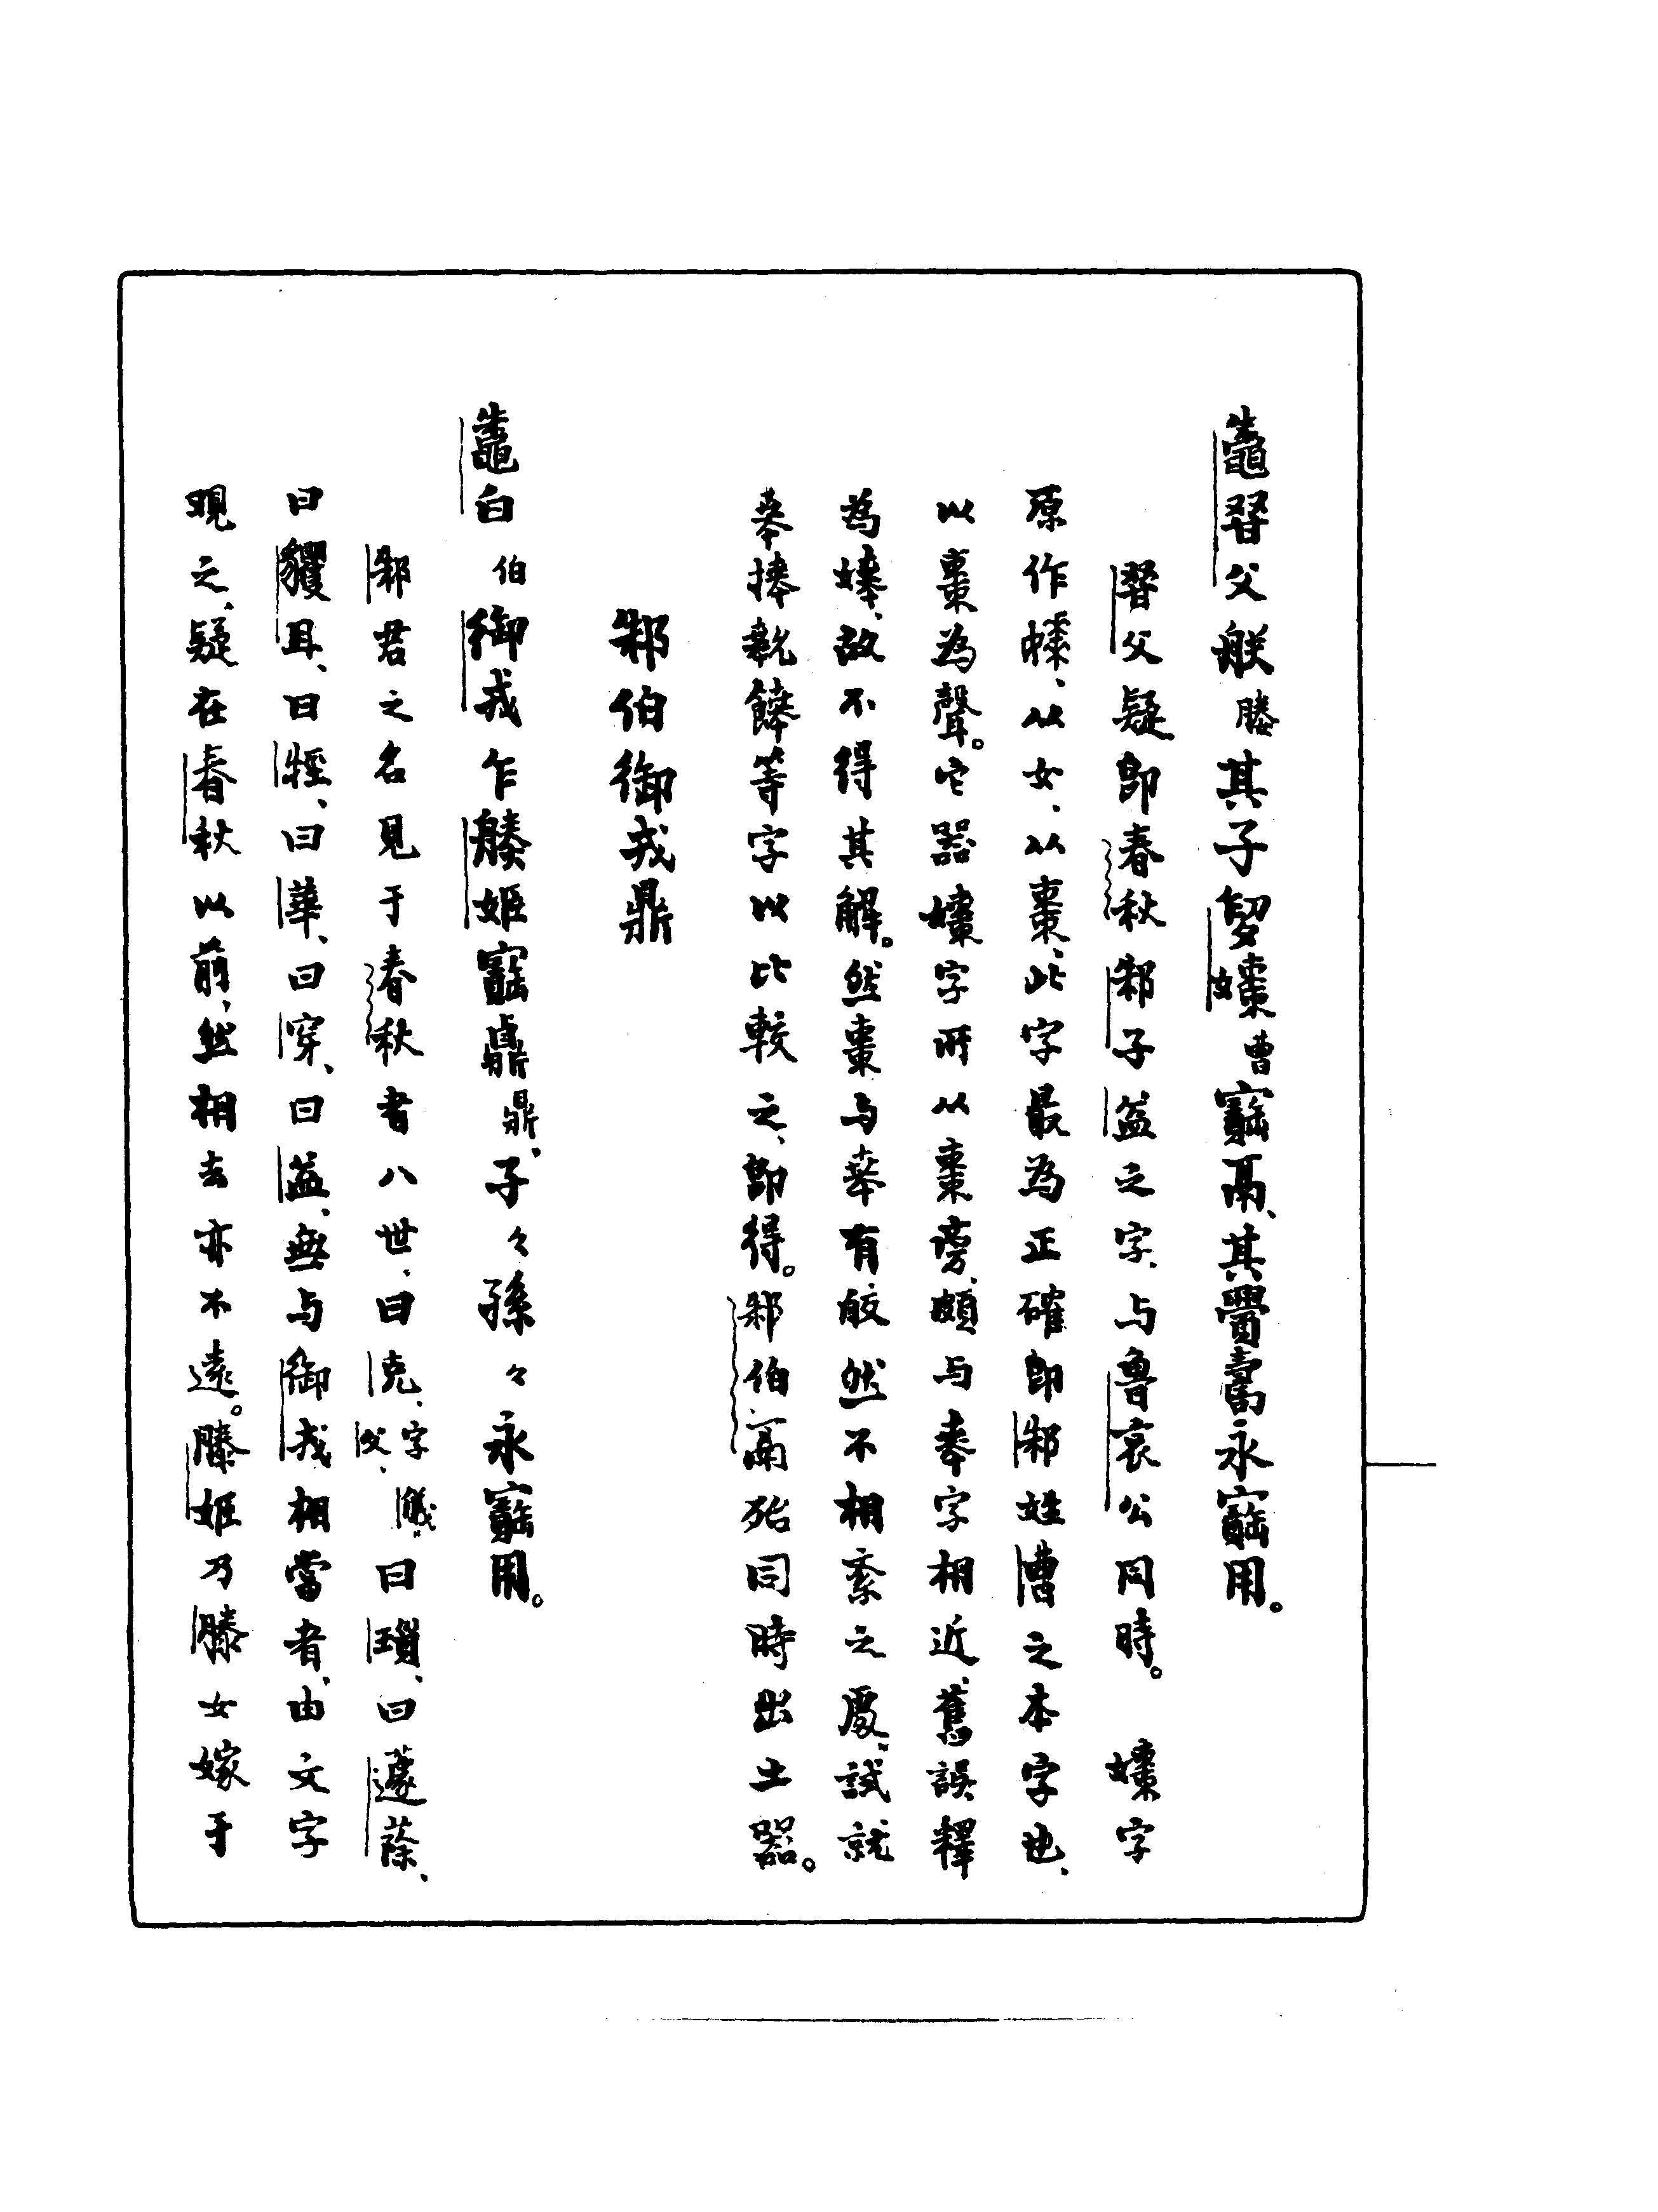 鼄友父朕媵其子曹寶鬲、其眉壽永寶用。
友父疑即春秋邾子益之字、与魯哀公同時。 字
原作、从女、从棗、此字最為正確即邾姓曹之本字也、
以棗為聲。它器字所从棗旁、頗与奉字相近、舊誤釋
為㛔、故不得其解。然棗与奉有皎然不相紊之處、試就
奉捧等字以比較之、即得。邾伯鬲殆同時出土器。
邾伯御戎鼎
鼄白伯御戎乍滕姬寶鼎、子々孫々永寶用。
邾君之名見于春秋者八世、曰克、字儀父、曰瑣、曰蘧蒢、
曰貜且、曰牼、曰華、曰穿、曰益、無与御戎相當者、由文字
覘之、疑在春秋以前、然相去亦不遠。滕姬乃滕女嫁于